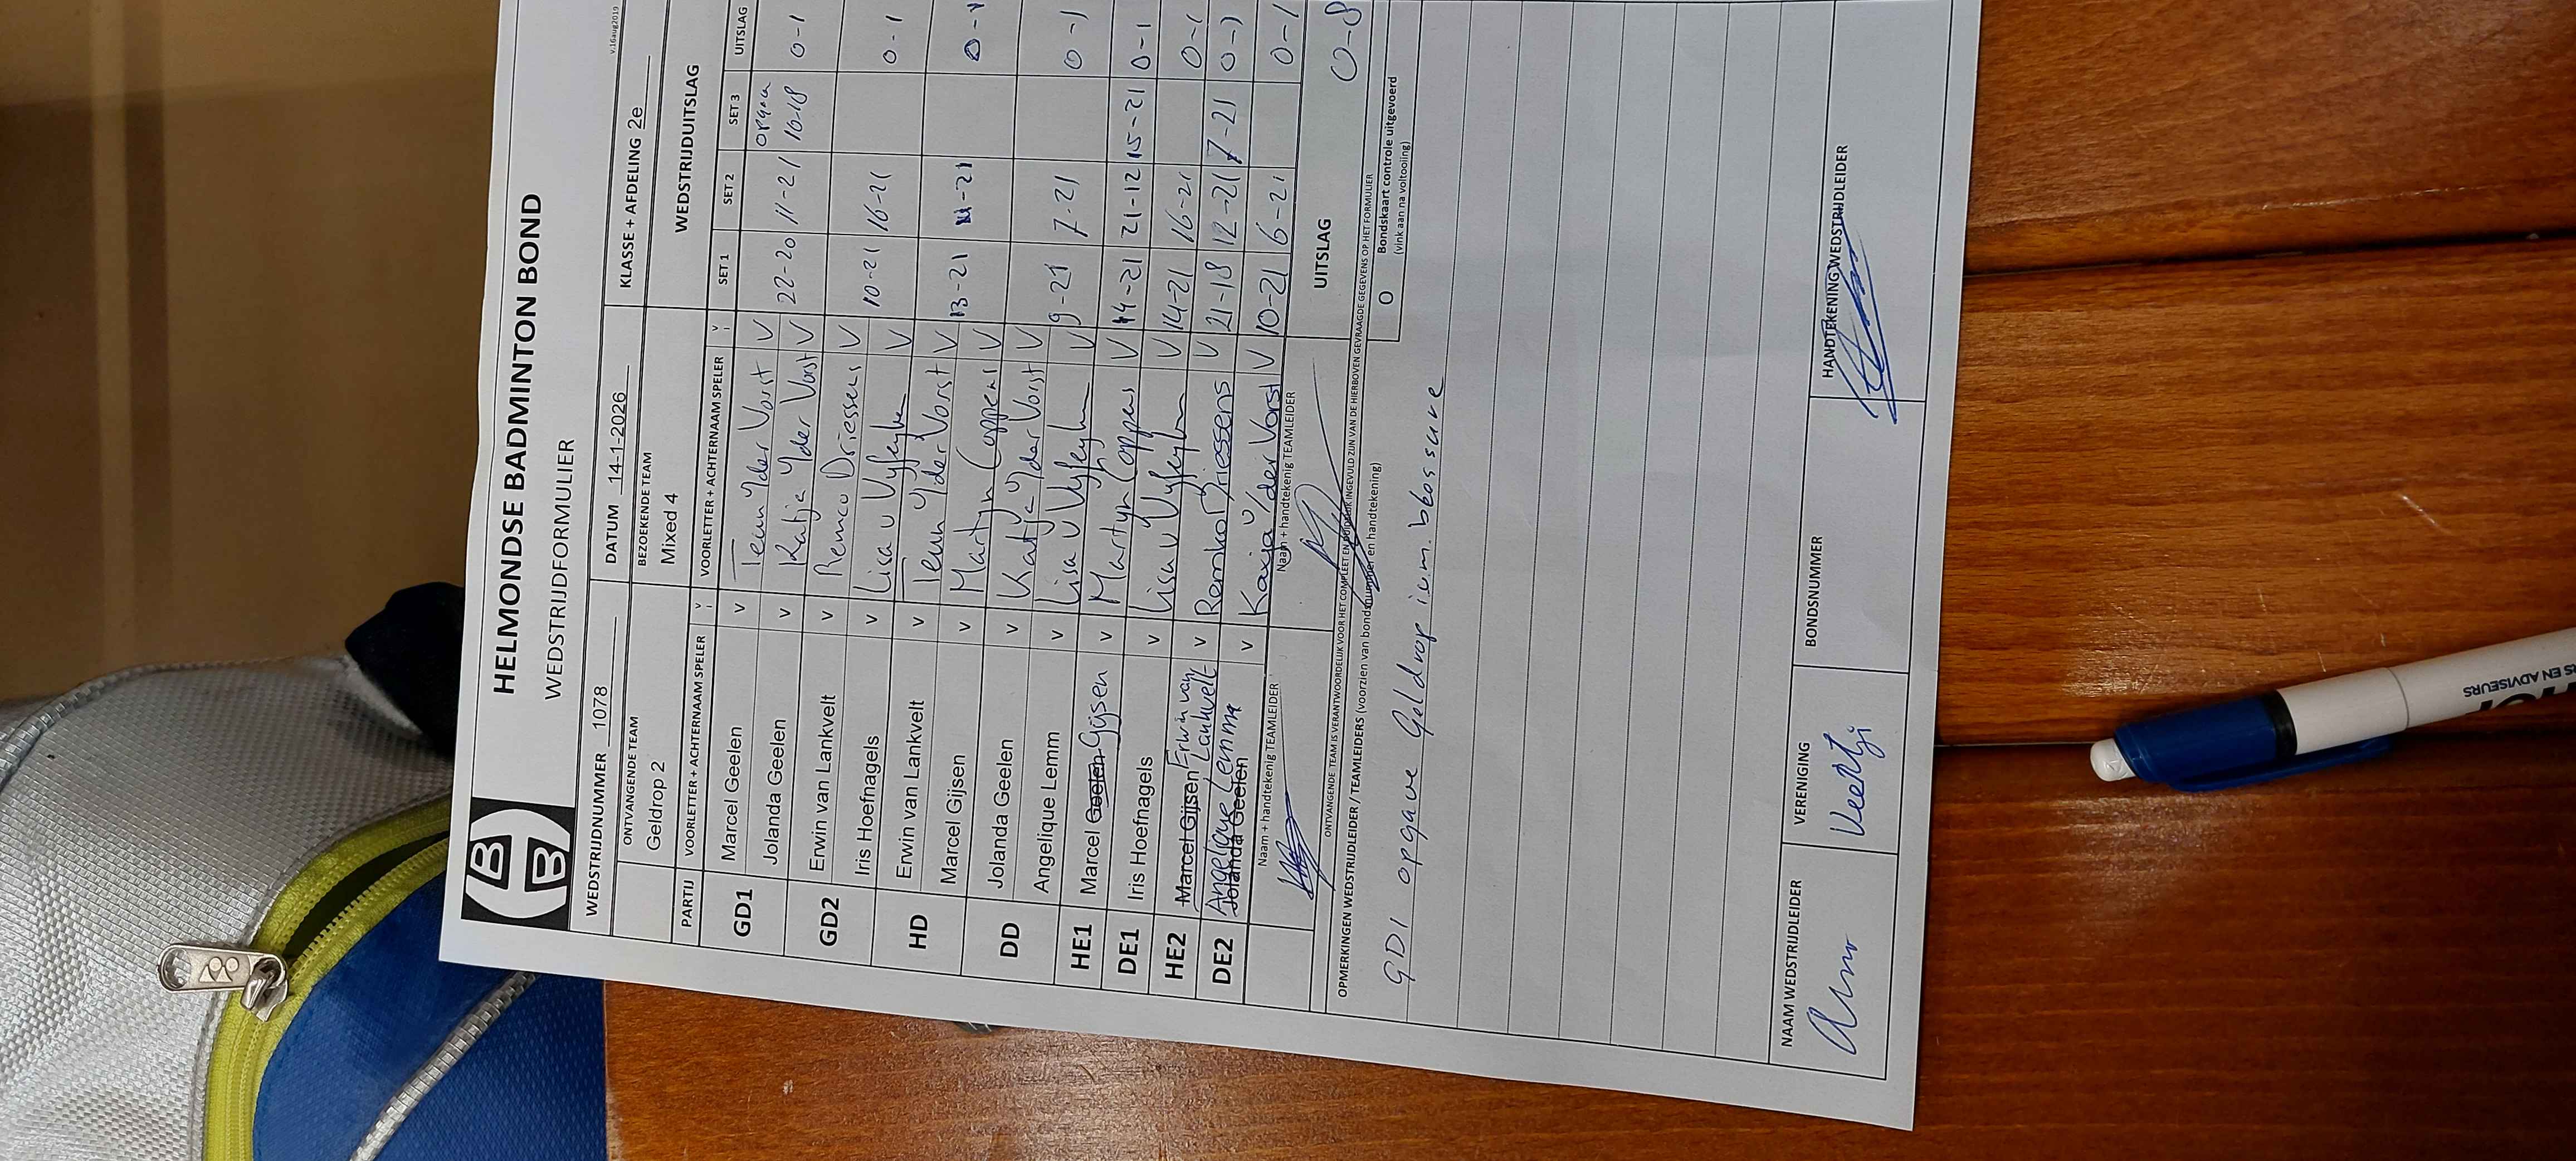 v.16aug2019
HELMONDSE BADMINTON BOND
WEDSTRIJDFORMULIER
WEDSTRIJDNUMMER 1078 DATUM 14-1-2026 KLASSE + AFDELING 2e
ONTVANGENDE TEAM BEZOEKENDE TEAM
Geldrop 2 Mixed 4 WEDSTRIJDUITSLAG
PARTIJ VOORLETTER + ACHTERNAAM SPELER V VOORLETTER + ACHTERNAAM SPELER V SET 1 SET 2 SET 3 UITSLAG
GD1 Marcel Geelen V Teun v der Vorst V opgave
Jolanda Geelen V Katja v der Vorst V 22-20 11-21 16-18 0-1
GD2 Erwin van Lankvelt V Remco Driessens V
Iris Hoefnagels V Lisa v V 10-21 16-21 0-1
HD Erwin van Lankvelt V Teun v der Vorst V
Marcel Gijsen V Martyn Coppens V 13-21 -21 0-1
DD Jolanda Geelen V Katja v der Vorst V
Angelique Lemm V Lisa v V 9-21 7-21 0-1
HE1 Marcel Geelen Gijsen V Martyn Coppens V 14-21 21-12 15-21 0-1
DE1 Iris Hoefnagels V Lisa v V 14-21 16-21 0-1
HE2 Marcel Gijsen Erwin van Lankvelt V Remko Driessens V 21-18 12-21 7-21 0-1
DE2 Jolanda Geelen Angelique Lemm V Katja v der Vorst V 10-21 6-21 0-1
Naam + handtekenig TEAMLEIDER Naam + handtekenig TEAMLEIDER UITSLAG 0-8
ONTVANGENDE TEAM IS VERANTWOORDELIJK VOOR HET COMPLEET EN DUIDELIJK INGEVULD ZIJN VAN DE HIERBOVEN GEVRAAGDE GEGEVENS OP HET FORMULIER
OPMERKINGEN WEDSTRIJDLEIDER / TEAMLEIDERS (voorzien van bondsnummer en handtekening) O Bondskaart controle uitgevoerd
(vink aan na voltooiing)
GD1 opgave Geldrop i.v.m. blessure
NAAM WEDSTRIJDLEIDER VERENIGING BONDSNUMMER HANDTEKENING WEDSTRIJDLEIDER
EN ADVISEURS